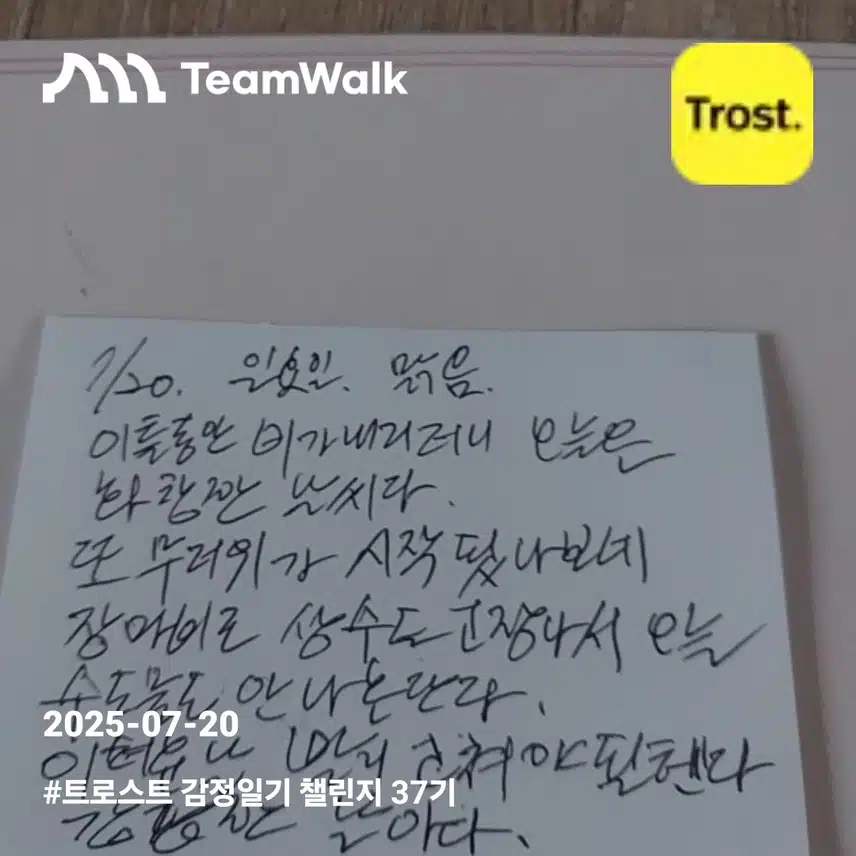 TeamWalk
Trost.
7/20. 일요일. 맑음.
이틀동안 비가내리더니 오늘은
화창한 날씨다.
또 무더위가 시작 됬나보네
장매비로 상수도 고장나서 오늘
수도물도 안 나온단다.
2025-07-20
빨리 고쳐야 될텐다
#트로스트 감정일기 챌린지 37기
날이다.